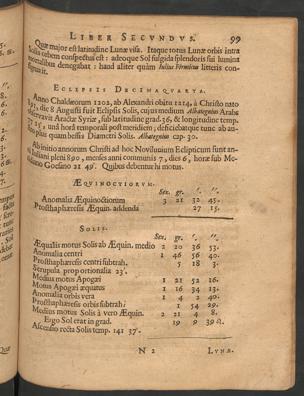 LIBER SECUNDUS. 99
Quæ major est latitudine Lunæ visa. Itaque totus Lunæ orbis intra
Solis orbem conspectus est: adeoque Sol fulsit splendoris sui lumina
mortalibus denegabat: haud aliter quàm Julius Firmicus litteris con-
signavit.
ECLIPSIS DECIMAQUARTA.
Anno Chaldæorum 1202, ab Alexandri obitu 1214, à Christo nato
die 8 Augusti fuit Eclipsis Solis, cujus medium Albategnius Arabs
observavit Aractæ Syriæ, sub latitudine grad. 36, & longitudine temp.
und horâ temporali post meridiem; deficiebatque tunc ab au-
plus quàm bessis Diametri Solis. Albategnius cap. 30.
Ab initio annorum Christi ad hoc Novilunium Eclipticum sunt an-
ni Juliani pleni 890, menses anni communis 7, dies 6, horæ sub Me-
ridiano Goesano 21 49'. Quibus debentur hi motus.
ÆQUINOCTIORUM.
Sex. gr. '. ''.
Anomalia Æquinoctiorum 3 21 32 45.
Prosthaphæresis Æquin. addenda 27 15.
SOLIS.
Sex. gr. '. ''.
Æqualis motus Solis ab Æquin. medio 2 20 36 53.
Anomalia centri 1 46 56 40.
Prosthaphæresis centri subtrah. 5 18 3.
Scrupula proportionalia 23'.
Medius motus Apogæi 1 21 52 16.
Motus Apogæi æquatus 1 16 34 13.
Anomalia orbis vera 1 4 2 40.
Prosthaphæresis orbis subtrah. 1 54 29.
Medius motus Solis à vero Æquin. 2 21 4 8.
Ergo Sol erat in grad. 19 9 39 ♌.
Ascensio recta Solis temp. 141 37'.
N 2 LUNÆ.